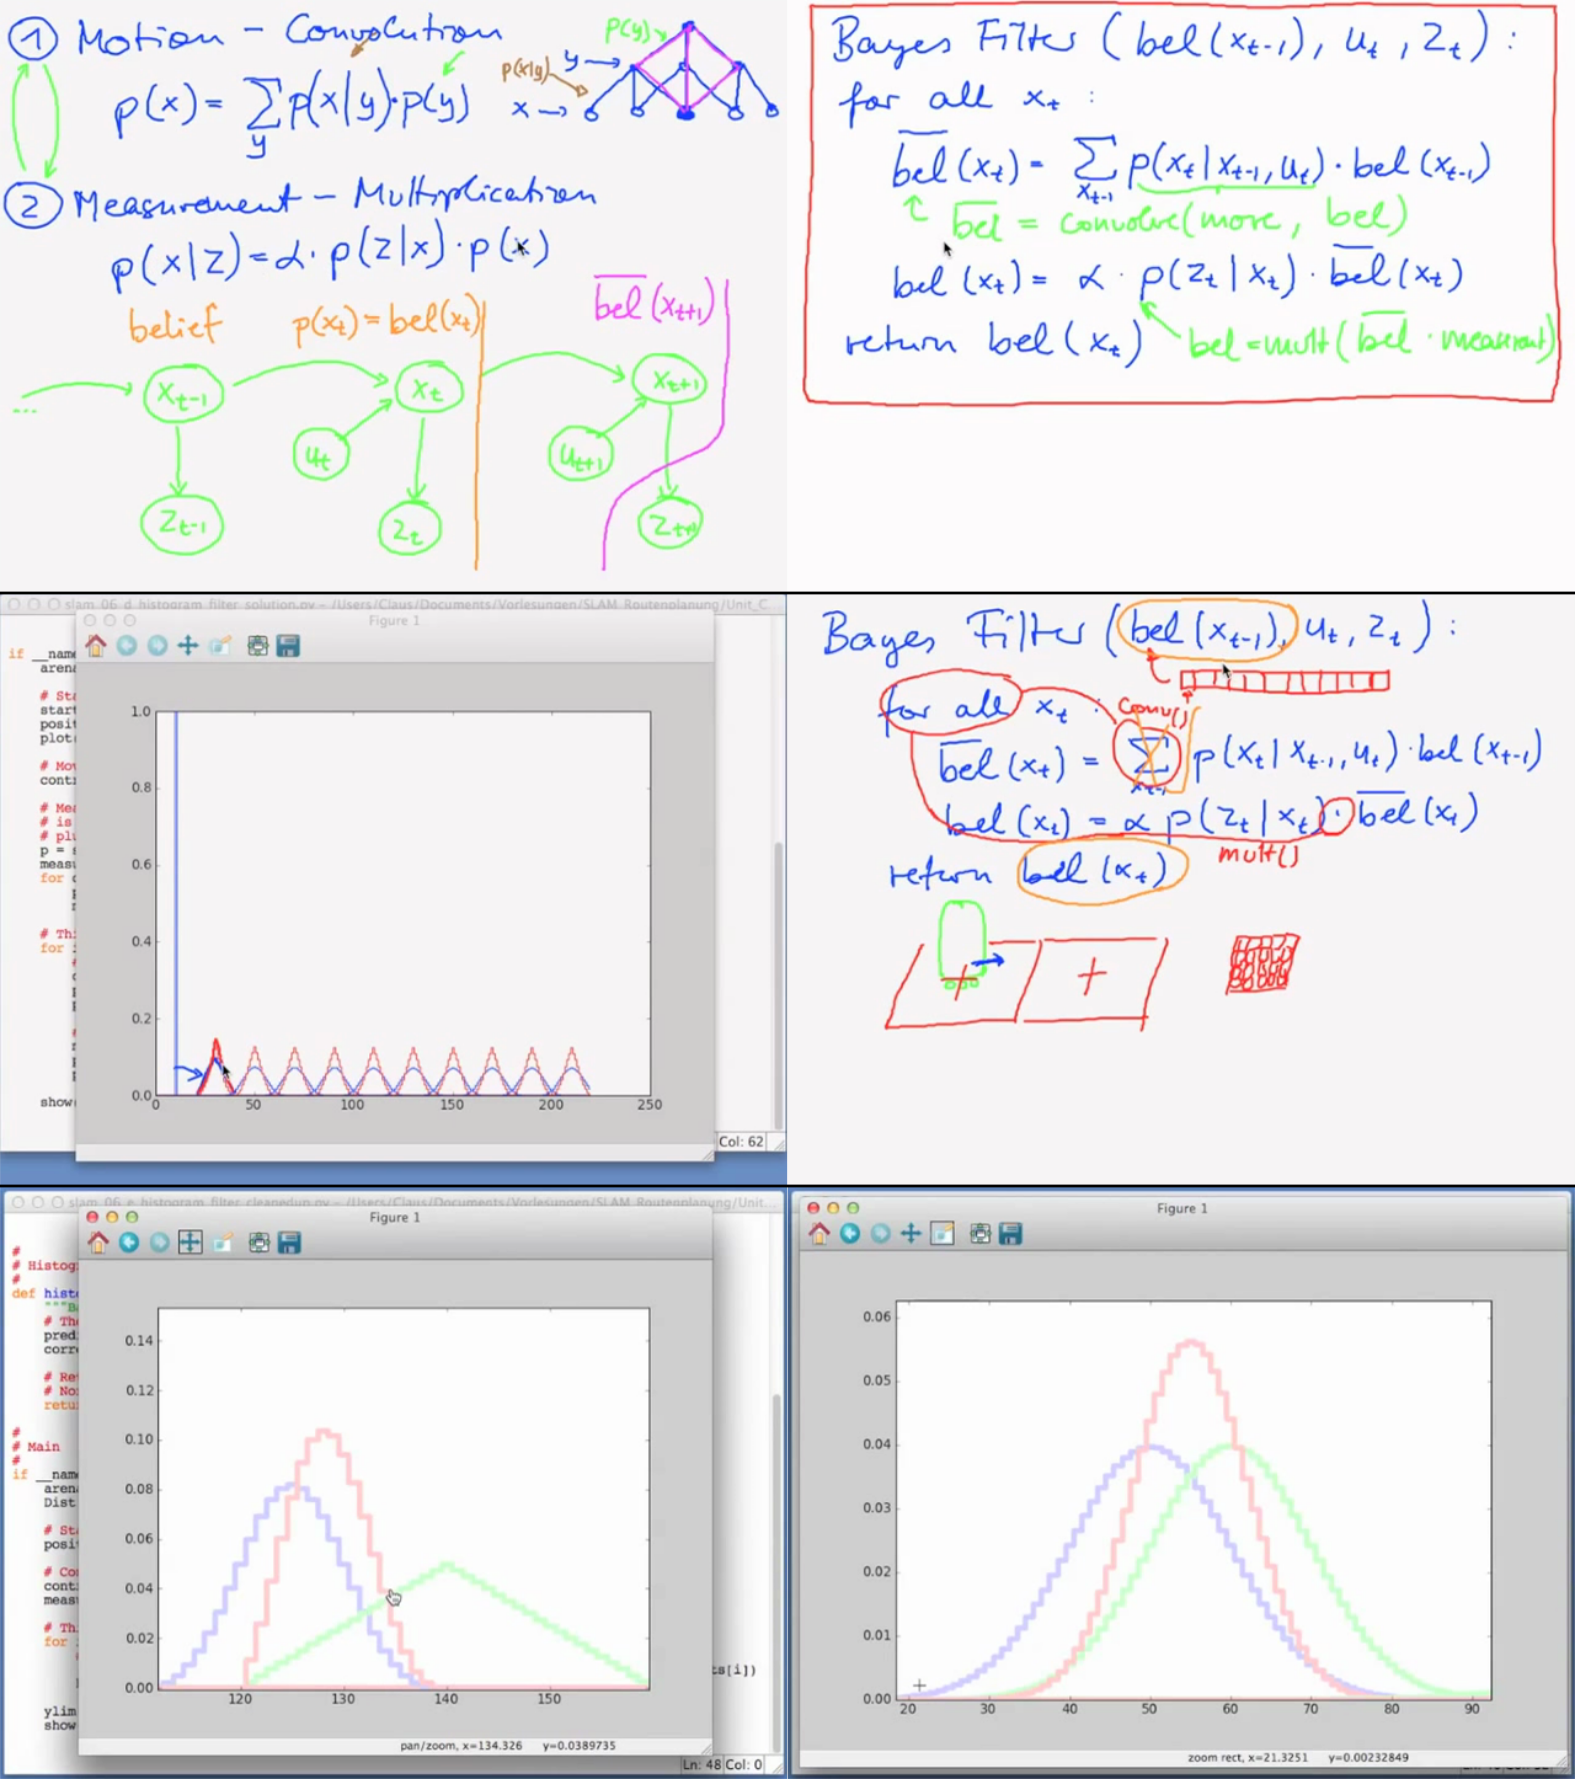 ① Motion – Convolution
p(x) = Σ p(x|y)·p(y)
y
p(y)
y →
p(x|y)
x →
② Measurement – Multiplication
p(x|z) = α · p(z|x) · p(x)
belief p(x_t) = bel(x_t)
b̅e̅l̅(x_{t+1})
...
x_{t-1} x_t x_{t+1}
u_t u_{t+1}
z_{t-1} z_t z_{t+1}
Bayes Filter (bel(x_{t-1}), u_t, z_t):
for all x_t:
b̅e̅l̅(x_t) = Σ p(x_t|x_{t-1}, u_t) · bel(x_{t-1})
x_{t-1}
b̅e̅l̅ = convolve(move, bel)
bel(x_t) = α · p(z_t|x_t) · b̅e̅l̅(x_t)
return bel(x_t)
bel = mult(b̅e̅l̅ · measurement)
slam_06_d_histogram_filter_solution.py – /Users/Claus/Documents/Vorlesungen/SLAM_Routenplanung/Unit_C
Figure 1
if __name
arena
# Sta
start
posit
plot(
# Mov
contr
# Mea
# is
# plu
p =
measu
for
# Thi
for i
show(
1.0
0.8
0.6
0.4
0.2
0.0
0 50 100 150 200 250
Col: 62
Bayes Filter (bel(x_{t-1}), u_t, z_t):
for all x_t:
conv()
b̅e̅l̅(x_t) = Σ p(x_t|x_{t-1}, u_t) · bel(x_{t-1})
x_{t-1}
bel(x_t) = α p(z_t|x_t) · b̅e̅l̅(x_t)
mult()
return bel(x_t)
slam_06_e_histogram_filter_cleanedup.py – /Users/Claus/Documents/Vorlesungen/SLAM_Routenplanung/Unit...
Figure 1
#
# Histog
#
def histo
"""B
# The
predi
corre
# Re
# No
retu
#
# Main
#
if __name
arena
Dist
# Sta
posit
# Co
contr
measu
# Thi
for
ts[i])
ylim
show
0.14
0.12
0.10
0.08
0.06
0.04
0.02
0.00
120 130 140 150
pan/zoom, x=134.326 y=0.0389735
Ln: 48 Col: 0
Figure 1
0.06
0.05
0.04
0.03
0.02
0.01
0.00
20 30 40 50 60 70 80 90
zoom rect, x=21.3251 y=0.00232849